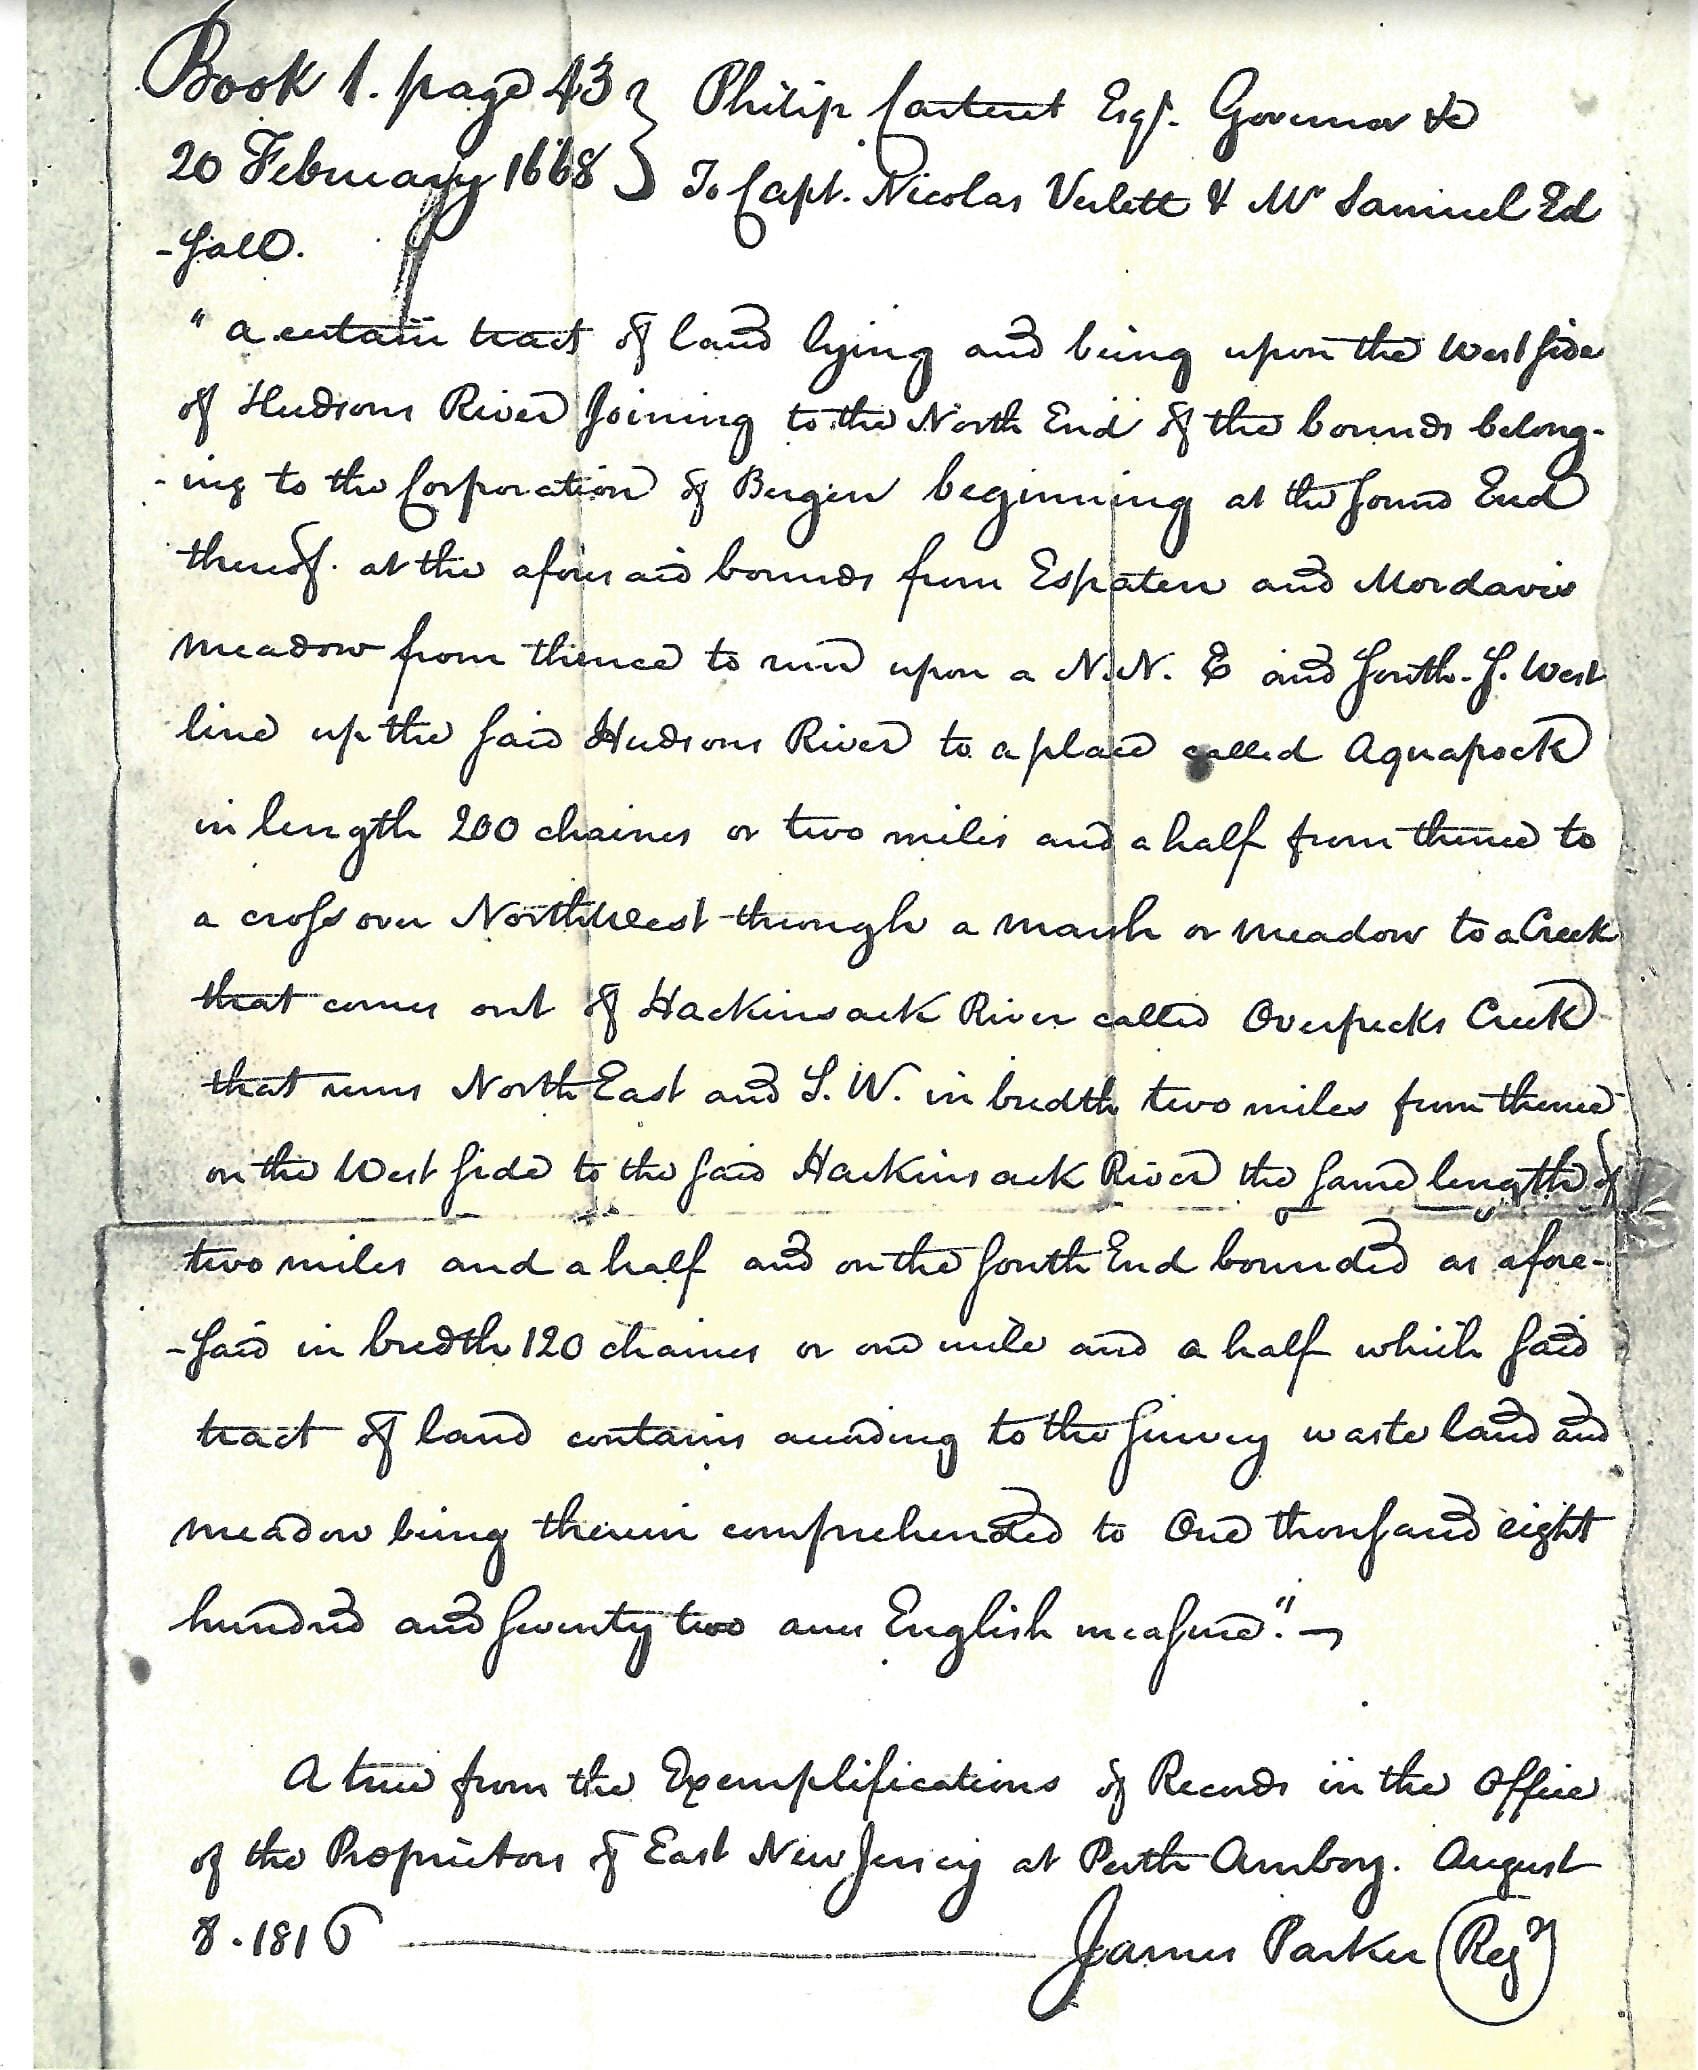 Book 1. page 43 } Philip Carteret Esqr. Governor &c
20 February 1668 } To Capt. Nicolas Verlett & Mr Samuel Ed
-sall.
"a certain tract of land lying and being upon the West side
of Hudsons River Joining to the North End of the bounds belong-
-ing to the Corporation of Bergen beginning at the sound End
thereof. at the aforesaid bounds from Espaten and Mordavis
meadow from thence to run upon a N.N. E and South-S. West
line up the said Hudsons River to a place called Aquapock
in length 200 chaines or two miles and a half from thence to
a cross over NorthWest through a marsh or meadow to a Creek
that comes out of Hackinsack River called Overpecks Creek
that runs North East and S. W. in bredth two miles from thence
on the West side to the said Hackinsack River the same length of
two miles and a half and on the South End bounded as afore-
-said in bredth 120 chaines or one mile and a half which said
tract of land contains according to the survey waste land and
meadow being therein comprehended to One thousand eight
hundred and seventy two acres English measure."
A true from the Exemplifications of Records in the Office
of the Proprietors of East New Jersey at Perth Amboy. August
8. 1816 James Parker (Regr)